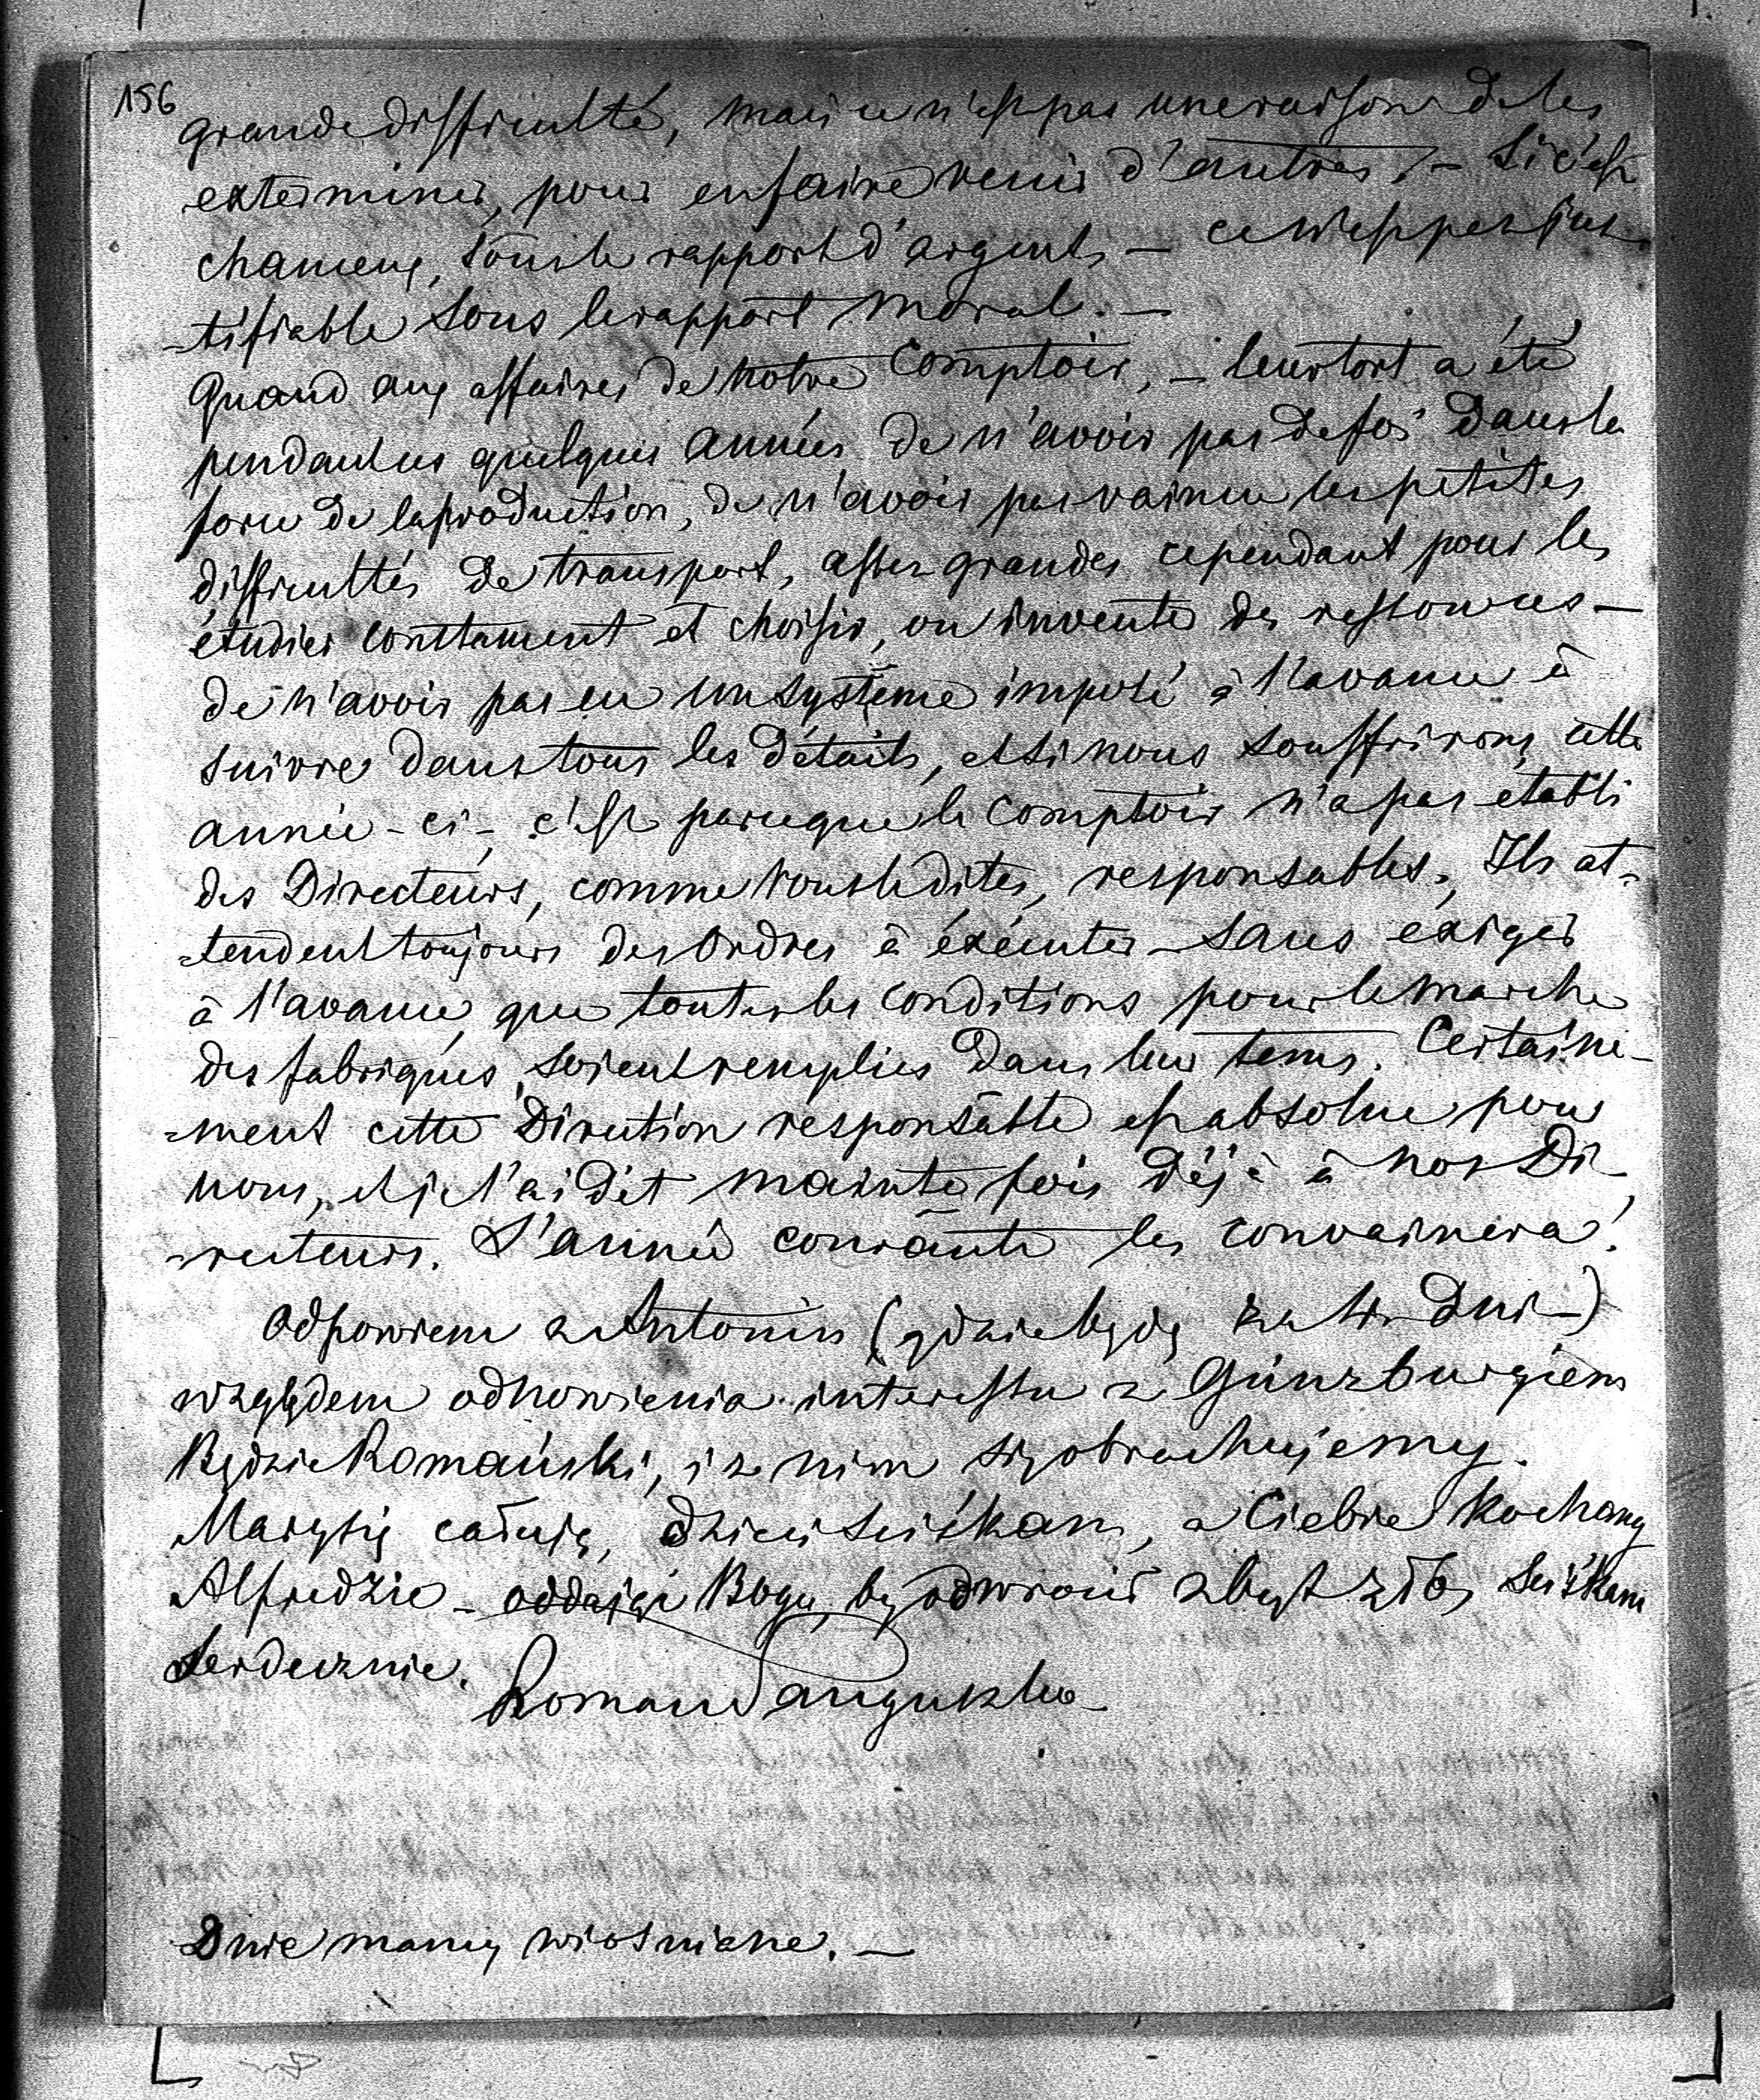 156
grande difficulté, mais ce n'est pas une raison de les
exterminer, pour en faire venir d'autres. – Si c'est
chanceux, sous le rapport d'argent, – ce n'est pas jus-
-tifiable sous le rapport moral. –
Quand aux affaires de notre Comptoir, – leur tort a été
pendant ces quelques années de n'avoir pas de foi dans la
force de la production, de n'avoir pas vaincu les petites
difficultés de transport, assez grandes cependant pour les
étudier et choisir, ou inventer des ressources –
de n'avoir pas eu un système imposé à l'avance à
suivre dans tous les détails, et si nous souffrirons cette
année-ci – c'est parceque le Comptoir n'a pas établi
des Directeurs, comme vous le dites, responsables, Ils at-
-tendent toujours des ordres à éxécuter – sans exiger
à l'avance, que toutes les conditions pour le marche
des fabriques, soient remplies dans leur tems. Certaine-
-ment cette Direction responsable est absolue pour
nous, et je l'ai dit mainte fois déjà à nos Di-
-recteurs. L'année courante les convaincra!
Odpowiem z Antonin (gdzie będę za dni –)
względem odnowienia interessu z Günzburgiem
Będzie Romański, i z nim się obrachujemy.
Marysię całuję, dzieci sciskam, a Ciebie kochany
Alfredzie – oddając Bogu, by odwrocił zbyt złe, sciskam
serdecznie.
Roman Sanguszko
Dnie mamy wiosniane. –